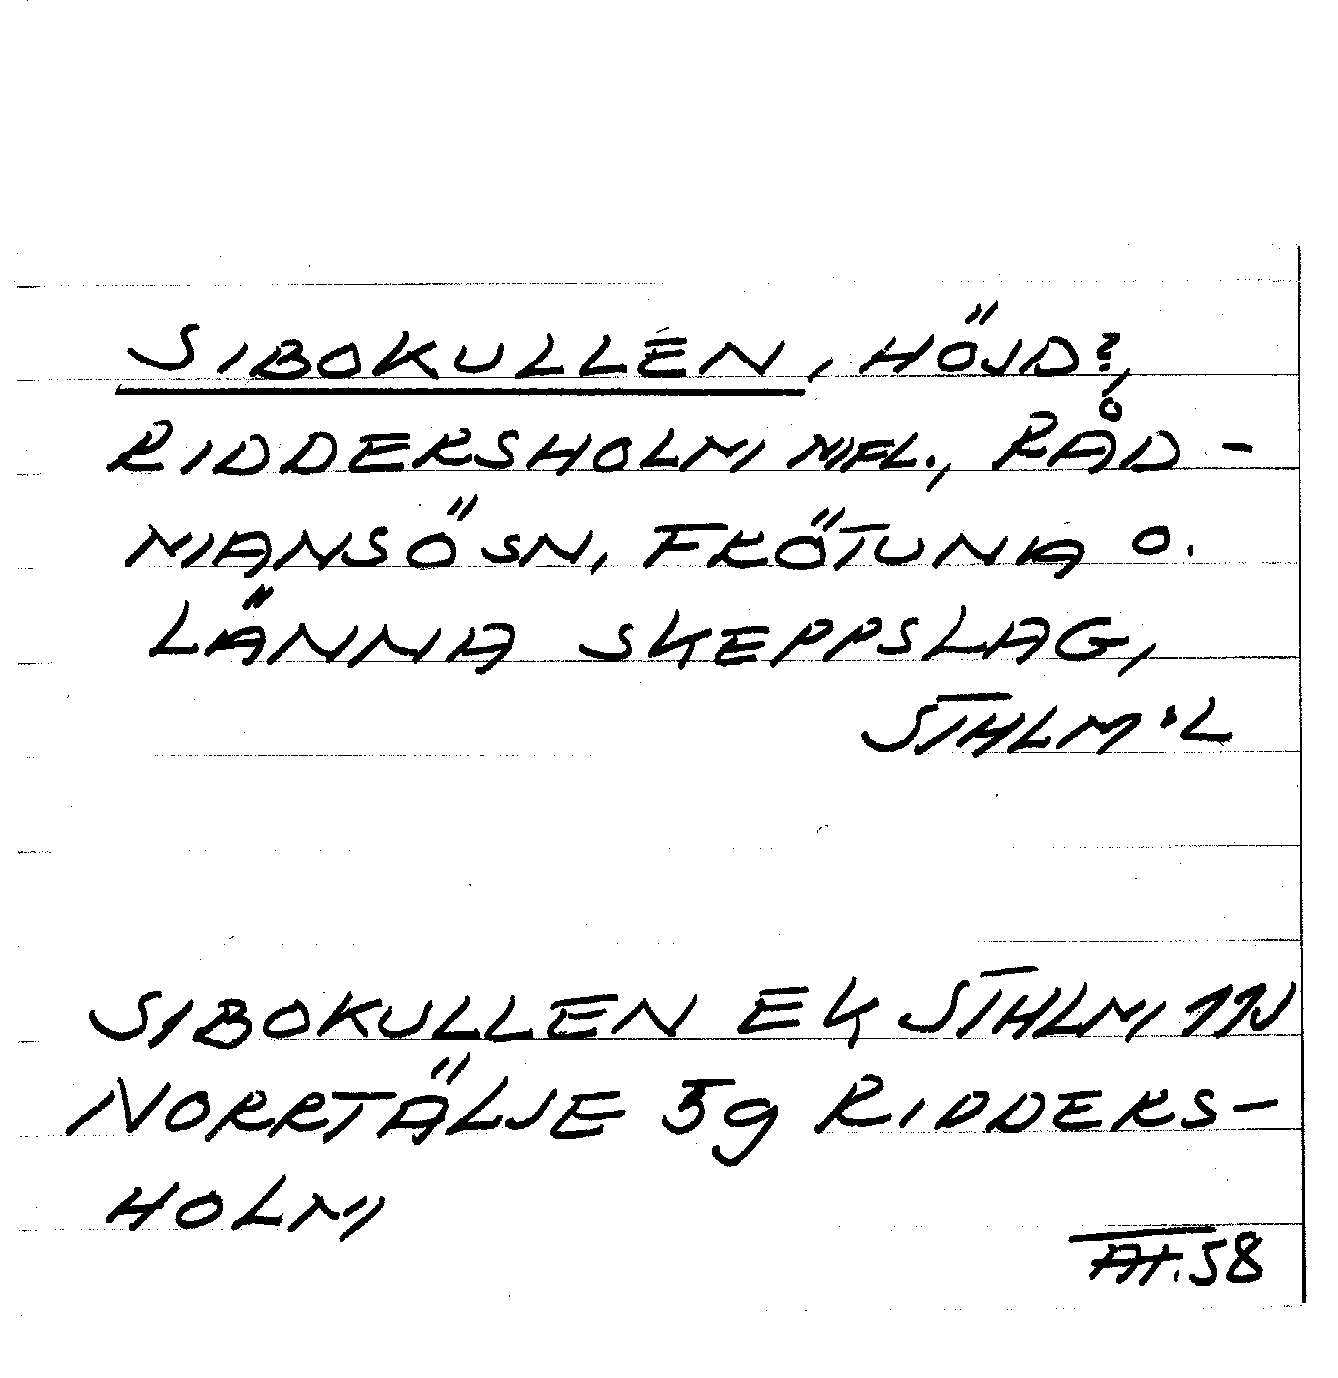 SIBOKULLEN, HÖJD?,
RIDDERSHOLM MFL., RÅD-
MANSÖ SN, FRÖTUNA O.
LÄNNA SKEPPSLAG,
STHLM:L
SIBOKULLEN EK STHLM 11J
NORRTÄLJE 5g RIDDERS-
HOLM
58